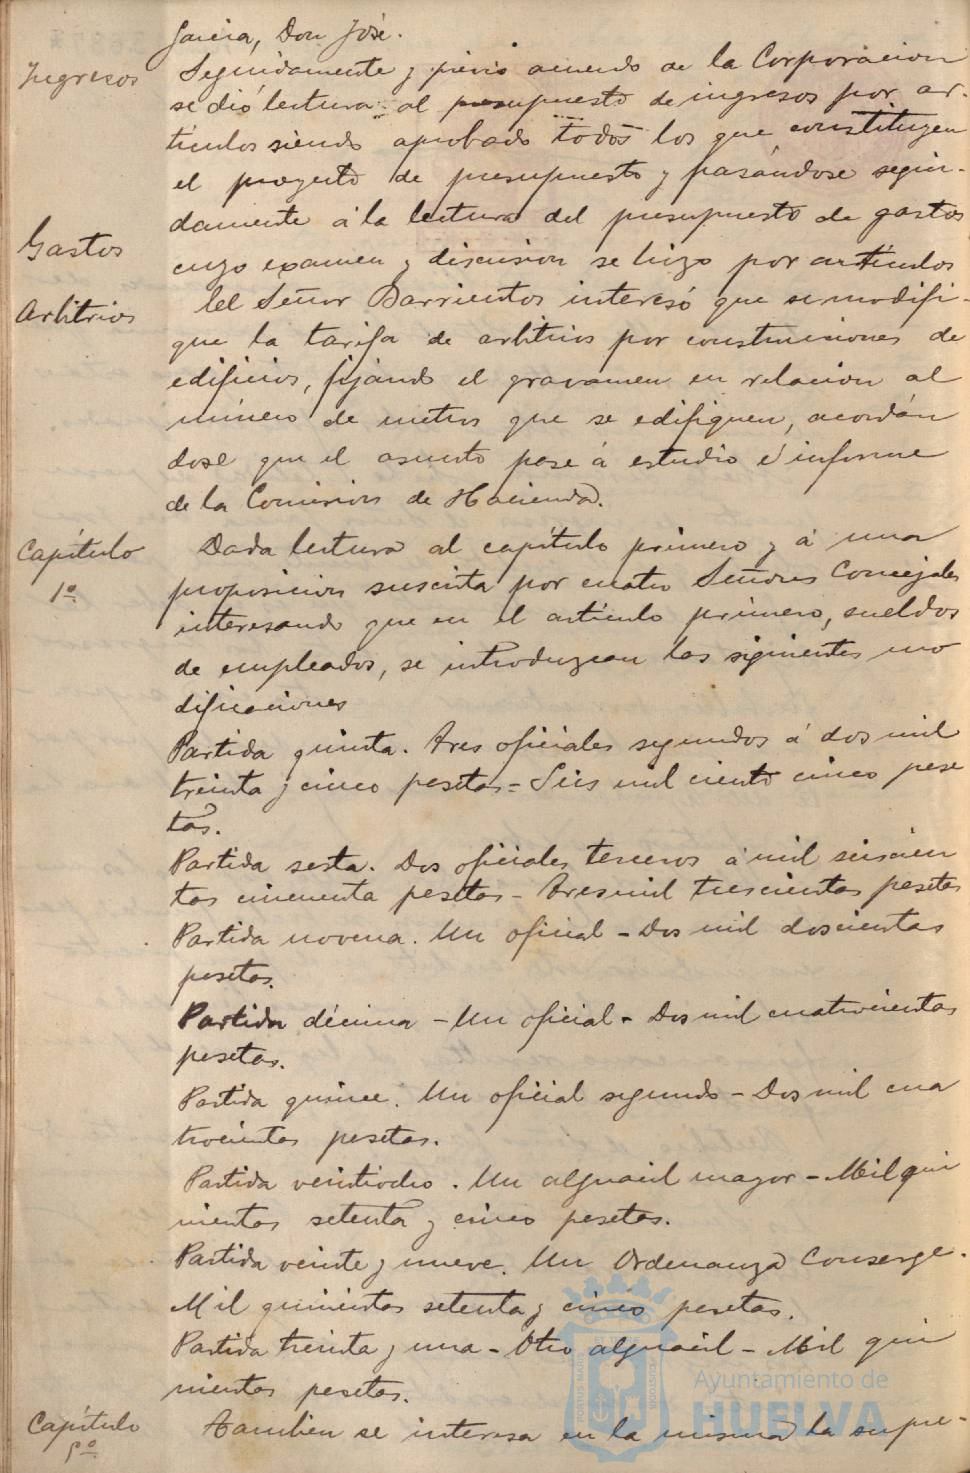 Garcia, Don José.
Ingresos
Seguidamente y previo acuerdo de la Corporacion
se dió lectura al presupuesto de ingresos por ar-
tículos siendo aprobado todos los que constituyen
el proyecto de presupuesto y pasándose segui-
damente á la lectura del presupuesto de gastos
Gastos
cuyo examen y discusion se hizo por artículos
Arbitrios
El Señor Barrientos interesó que se modifi-
que la tarifa de arbitrios por construcciones de
edificios, fijando el gravamen en relacion al
número de metros que se edifiquen, acordán
dose que el asunto pase á estudio é informe
de la Comision de Hacienda.
Capítulo
1º
Dada lectura al capítulo primero y á una
proposicion suscrita por cuatro Señores Concejales
interesando que en el artículo primero, sueldos
de empleados, se introduzcan las siguientes mo
dificaciones
Partida quinta. Tres oficiales segundos á dos mil
treinta y cinco pesetas = Seis mil ciento cinco pese
tas.
Partida sesta. Dos oficiales terceros á mil seiscien
tas cincuenta pesetas - Tres mil trescientas pesetas
Partida novena. Un oficial - Dos mil doscientas
pesetas.
Partida décima - Un oficial - Dos mil cuatrocientas
pesetas.
Partida quince. Un oficial segundo - Dos mil cua
trocientas pesetas.
Partida veintiocho. Un alguacil mayor - Mil qui
nientas setenta y cinco pesetas.
Partida veinte y nueve. Un Ordenanza Conserge.
Mil quinientas setenta y cinco pesetas.
Partida treinta y una - Otro alguacil - Mil qui
nientas pesetas.
Capítulo
Tambien se interesa en la misma la supre-
Ayuntamiento de
HUELVA